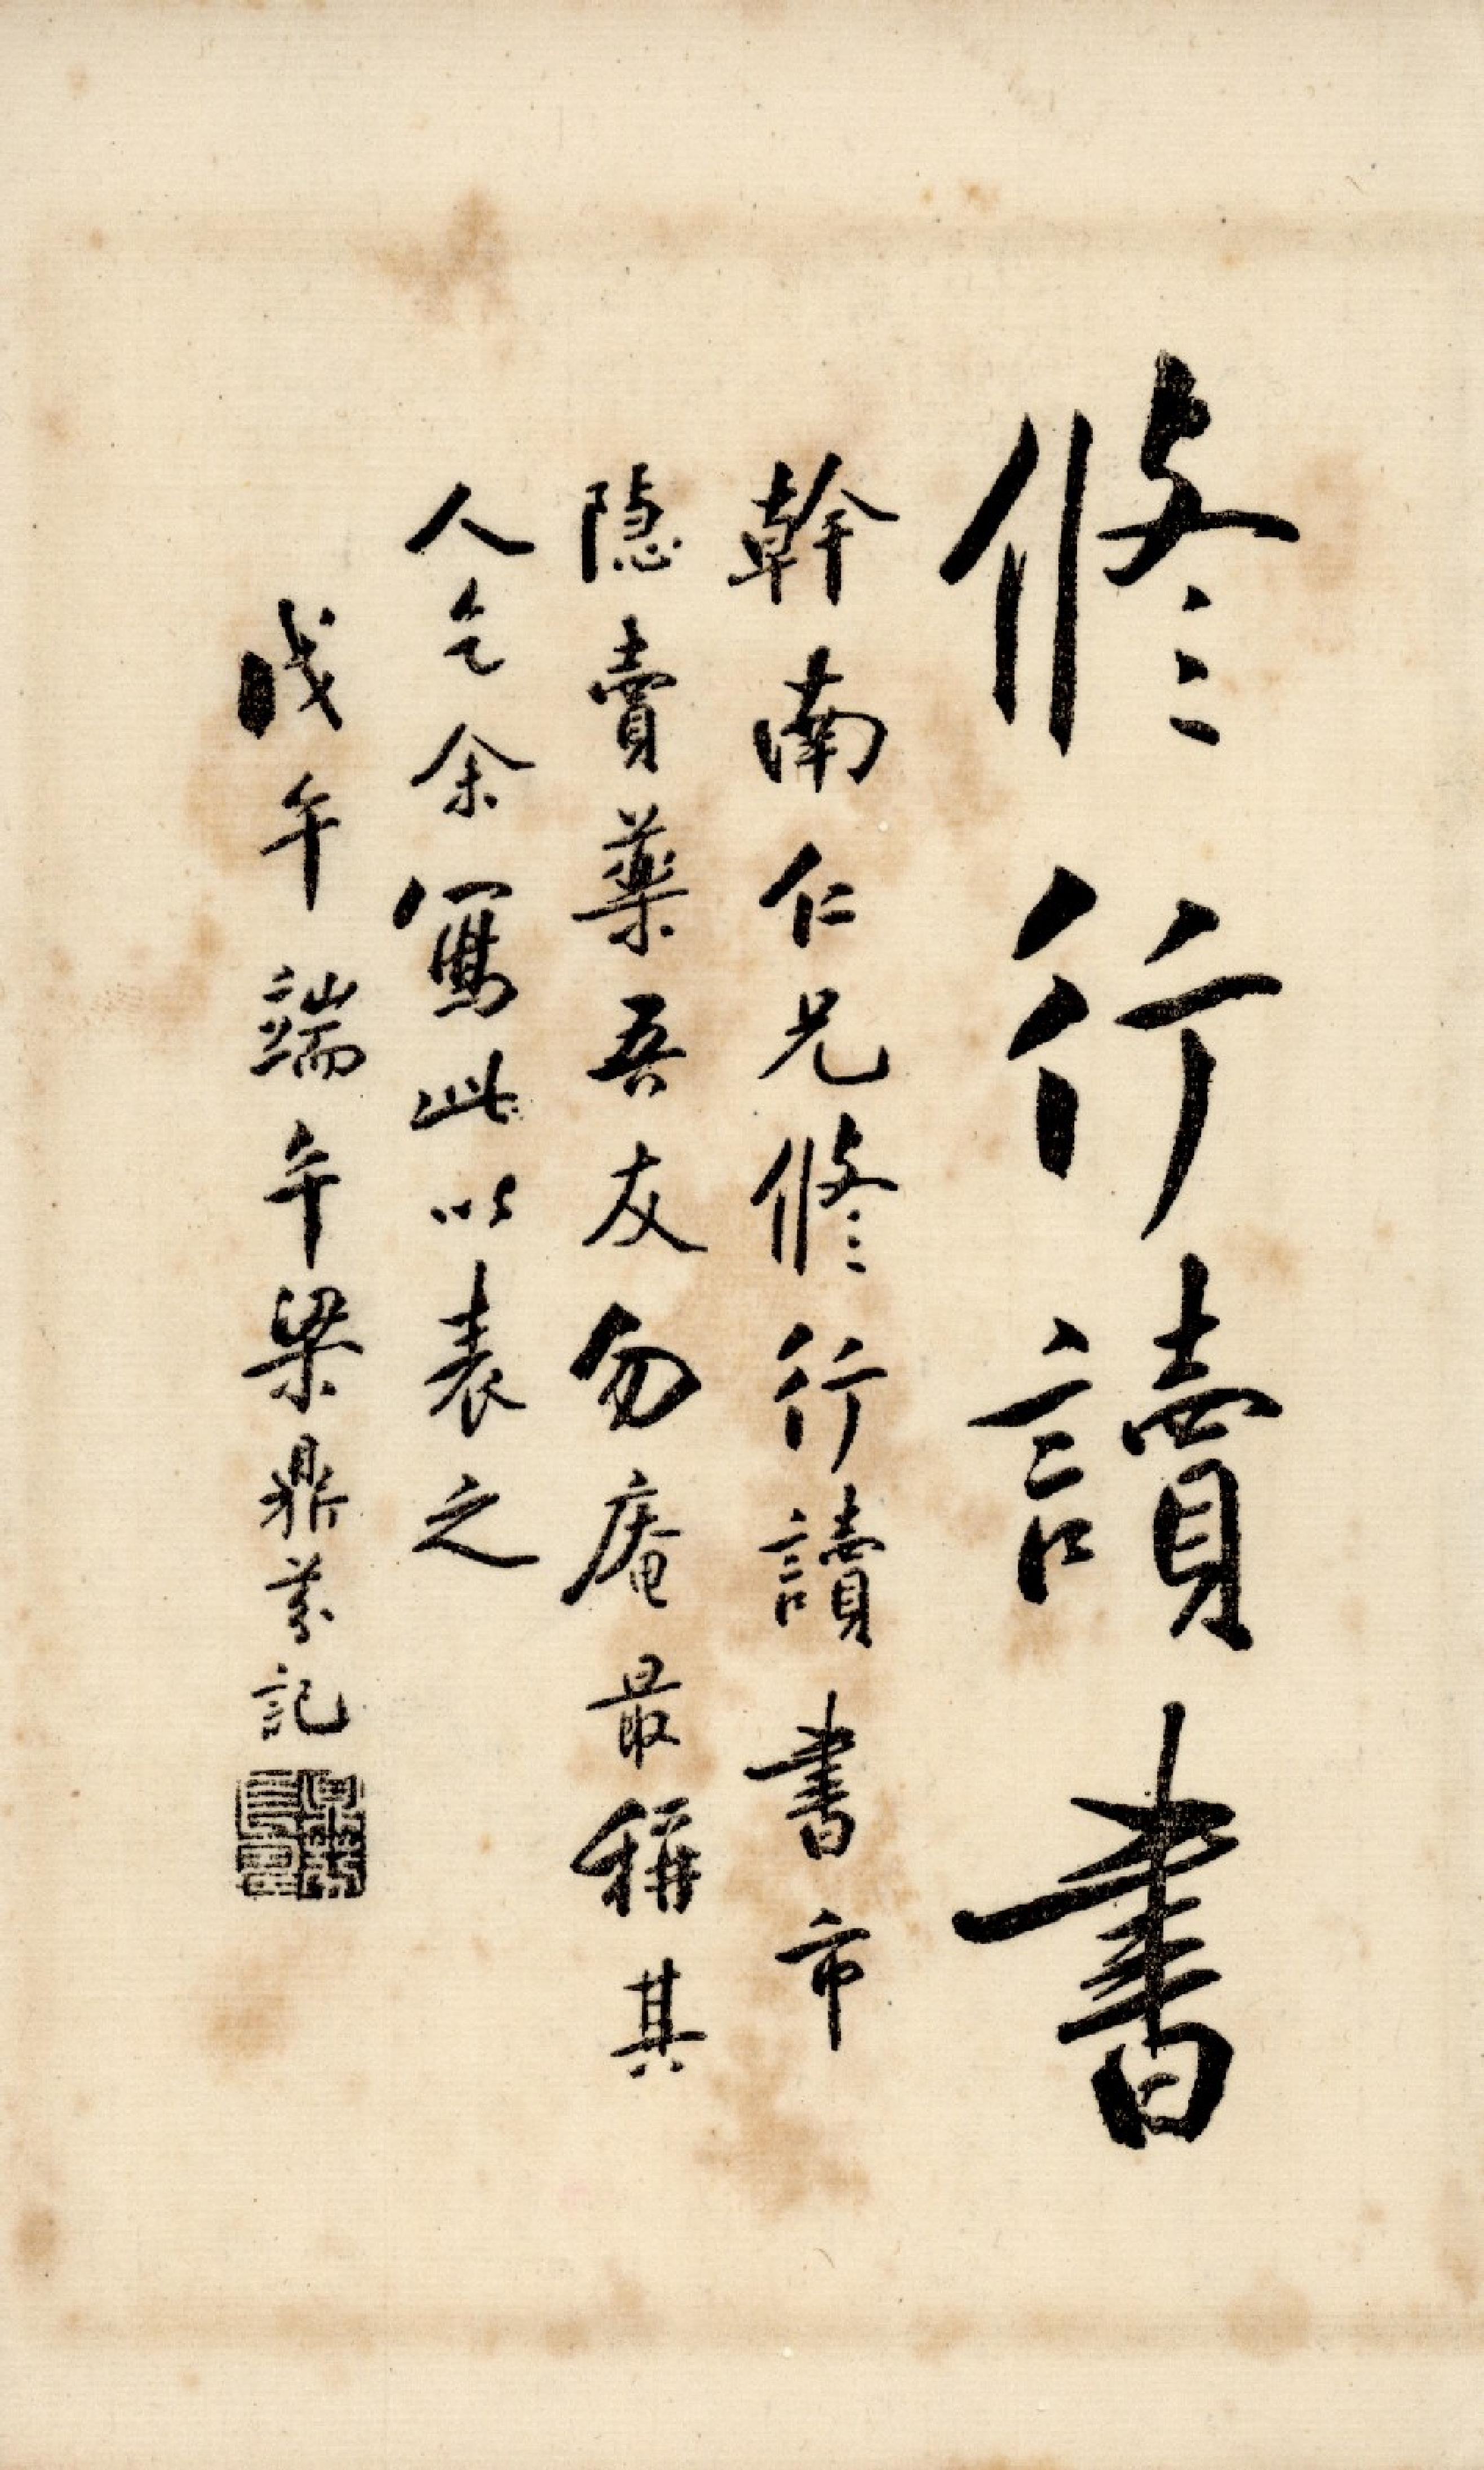 修行讀書
幹南仁兄修行讀書市
隱賣藥吾友勿庵最稱其
人乞余寫此以表之
戊午端午梁鼎芬記